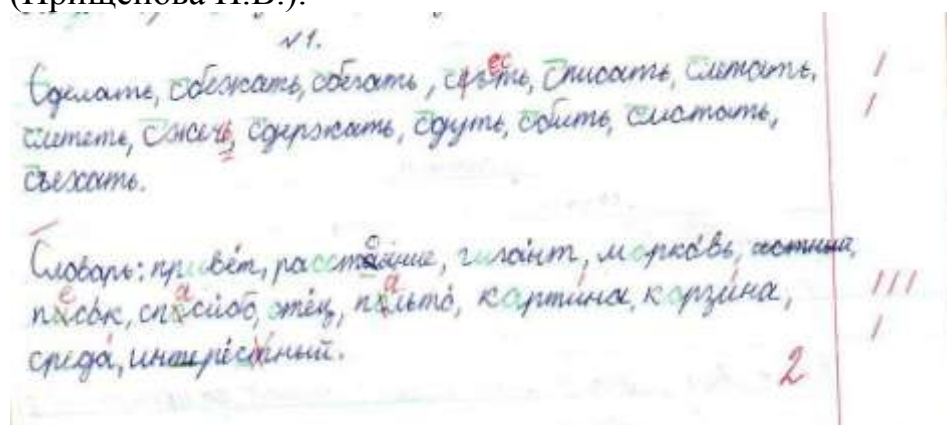 (Прищепова И.В.).
№1.
Сделать, сбежать, сбегать, съесть, списать, слетать,
слететь, сжечь, сдержать, сдуть, сбить, систать,
съехать.
Словарь: привет, расстояние, гигант, морковь,
песок, спасибо, отец, пальто, картина, корзина,
среда, интересный.
2